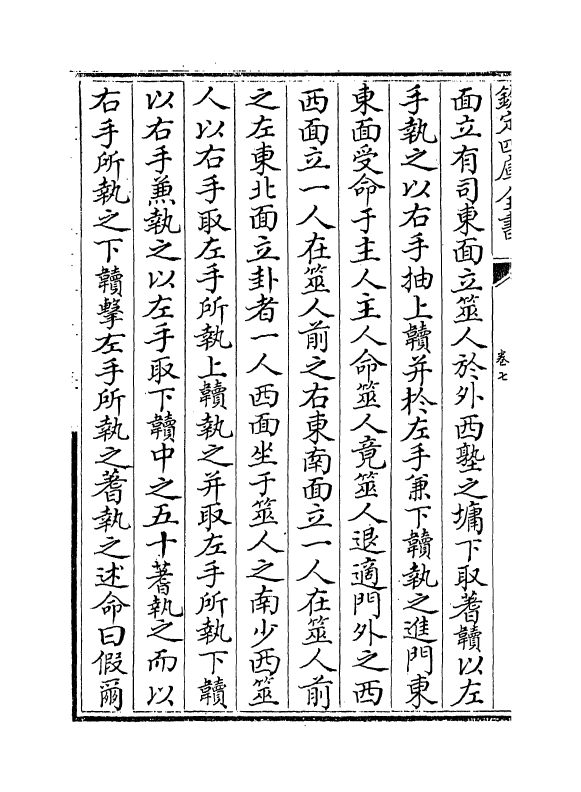 欽定四庫全書
卷七
面立有司東面立筮人於外西塾之墉下取蓍韇以左
手執之以右手抽上韇并於左手兼下韇執之進門東
東面受命于主人主人命筮人竟筮人退適門外之西
西面立一人在筮人前之右東南面立一人在筮人前
之左東北面立卦者一人西面坐于筮人之南少西筮
人以右手取左手所執上韇執之并取左手所執下韇
以右手兼執之以左手取下韇中之五十蓍執之而以
右手所執之下韇擊左手所執之蓍執之述命曰假爾